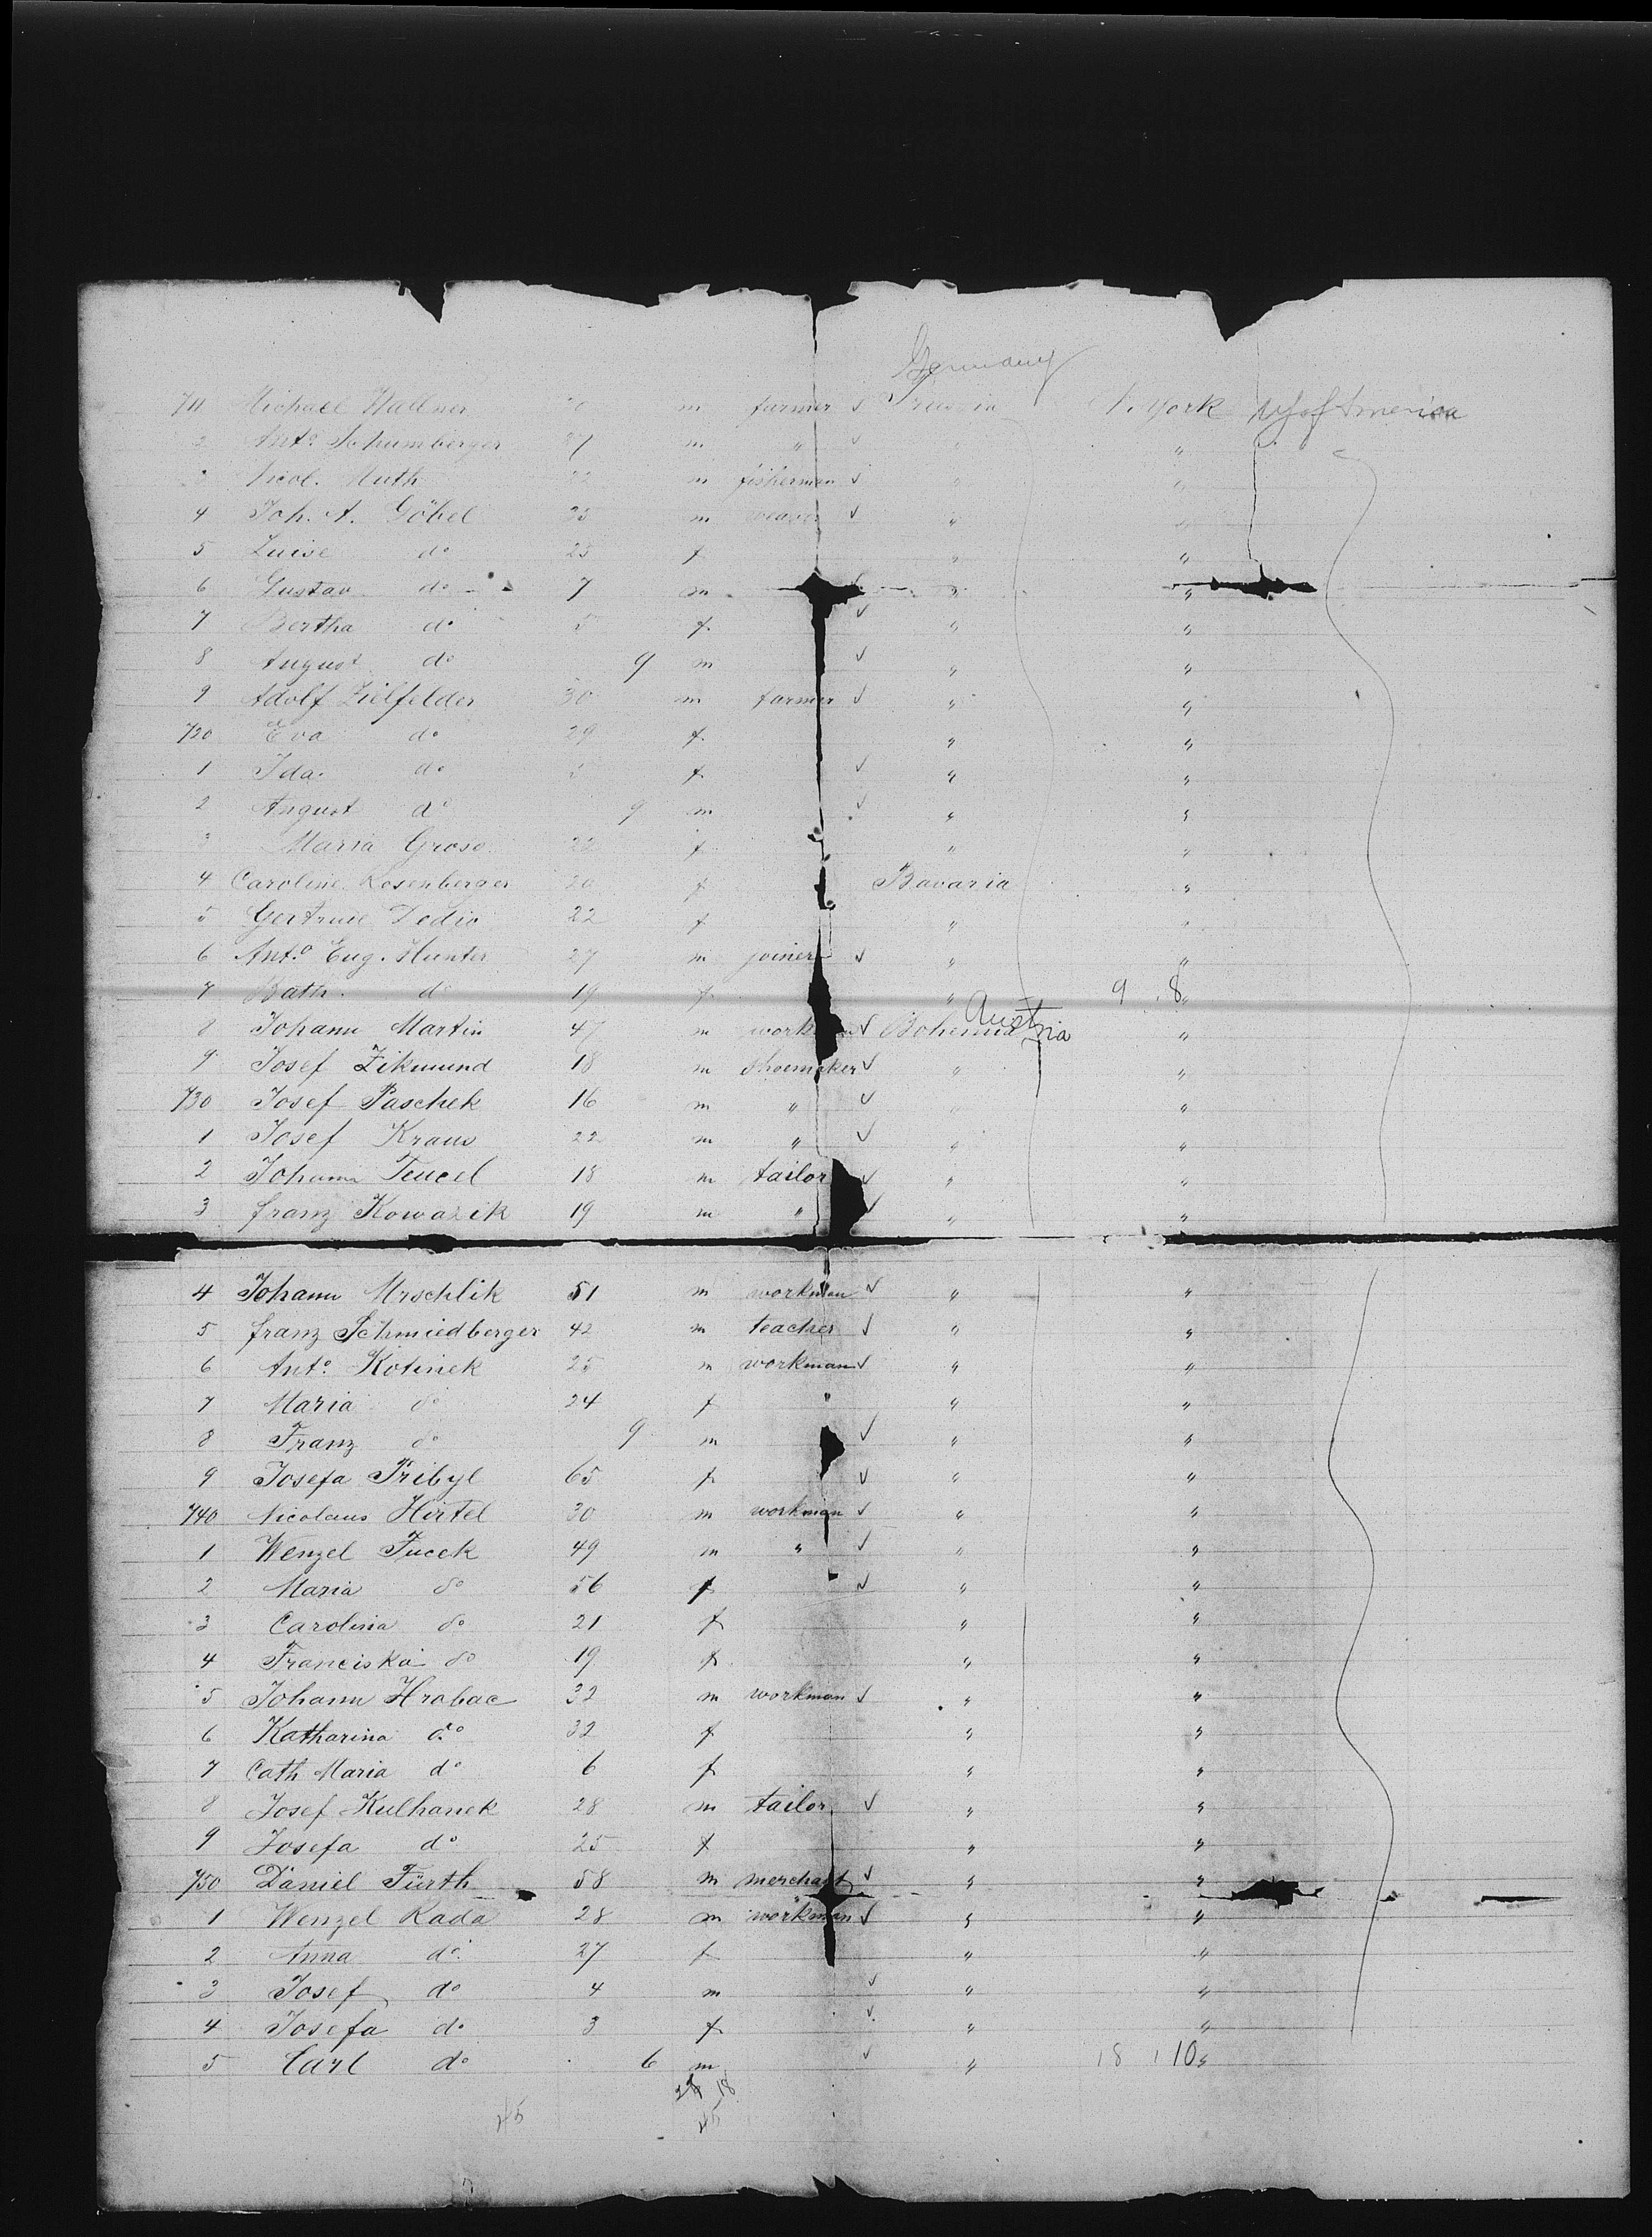 Germany
711 Michael Wallner m farmer ✓ Prussia N. York U S of America
2 Anto. Schumberger 27 m " ✓ " "
3 Nicol. Muth 22 m fisherman ✓ " "
4 Joh. A. Göbel 25 m weaver ✓ " "
5 Luise do 25 f " "
6 Gustav do 7 m ✓ " "
7 Bertha do 5 f ✓ " "
8 August do 9 m ✓ " "
9 Adolf Zielfelder 30 m farmer ✓ " "
720 Eva do 29 f " "
1 Ida do f ✓ " "
2 August do 9 m ✓ " "
3 Maria Gross 22 f " "
4 Caroline Rosenberger 20 f Bavaria "
5 Gertrude 22 f " "
6 Anto. Eug. Hunter 27 m joiner ✓ " "
7 Bath. do 19 f " 9 . 8 "
Austria
8 Johann Martin 47 m workman ✓ Bohemia "
9 Josef Zikmund 18 m shoemaker ✓ " "
730 Josef Paschek 16 m " ✓ " "
1 Josef Kraus 22 m " ✓ " "
2 Johann Teucel 18 m tailor ✓ " "
3 franz Kowarik 19 m " ✓ " "
4 Johann Mrschlik 51 m workman ✓ " "
5 franz Schmiedberger 42 m teacher ✓ " "
6 Anto. Kotinek 25 m workman ✓ " "
7 Maria do 24 f " " "
8 Franz do 9 m ✓ " "
9 Josefa Pribyl 65 f ✓ " "
740 Nicolaus Hirtel 30 m workman ✓ " "
1 Wenzel Fucek 49 m " ✓ " "
2 Maria do 56 f ✓ " "
3 Carolina do 21 f " "
4 Franciska do 19 f " "
5 Johann Hrabac 32 m workman ✓ " "
6 Katharina do 32 f " "
7 Cath Maria do 6 f " "
8 Josef Kulhanek 28 m tailor ✓ " "
9 Josefa do 25 f " "
750 Daniel Fürth 58 m merchant ✓ " "
1 Wenzel Kada 28 m workman ✓ " "
2 Anna do 27 f " "
3 Josef do 4 m ✓ " "
4 Josefa do 3 f ✓ " "
5 Carl do 6 m ✓ " 18 . 10 "
27 18
45 45